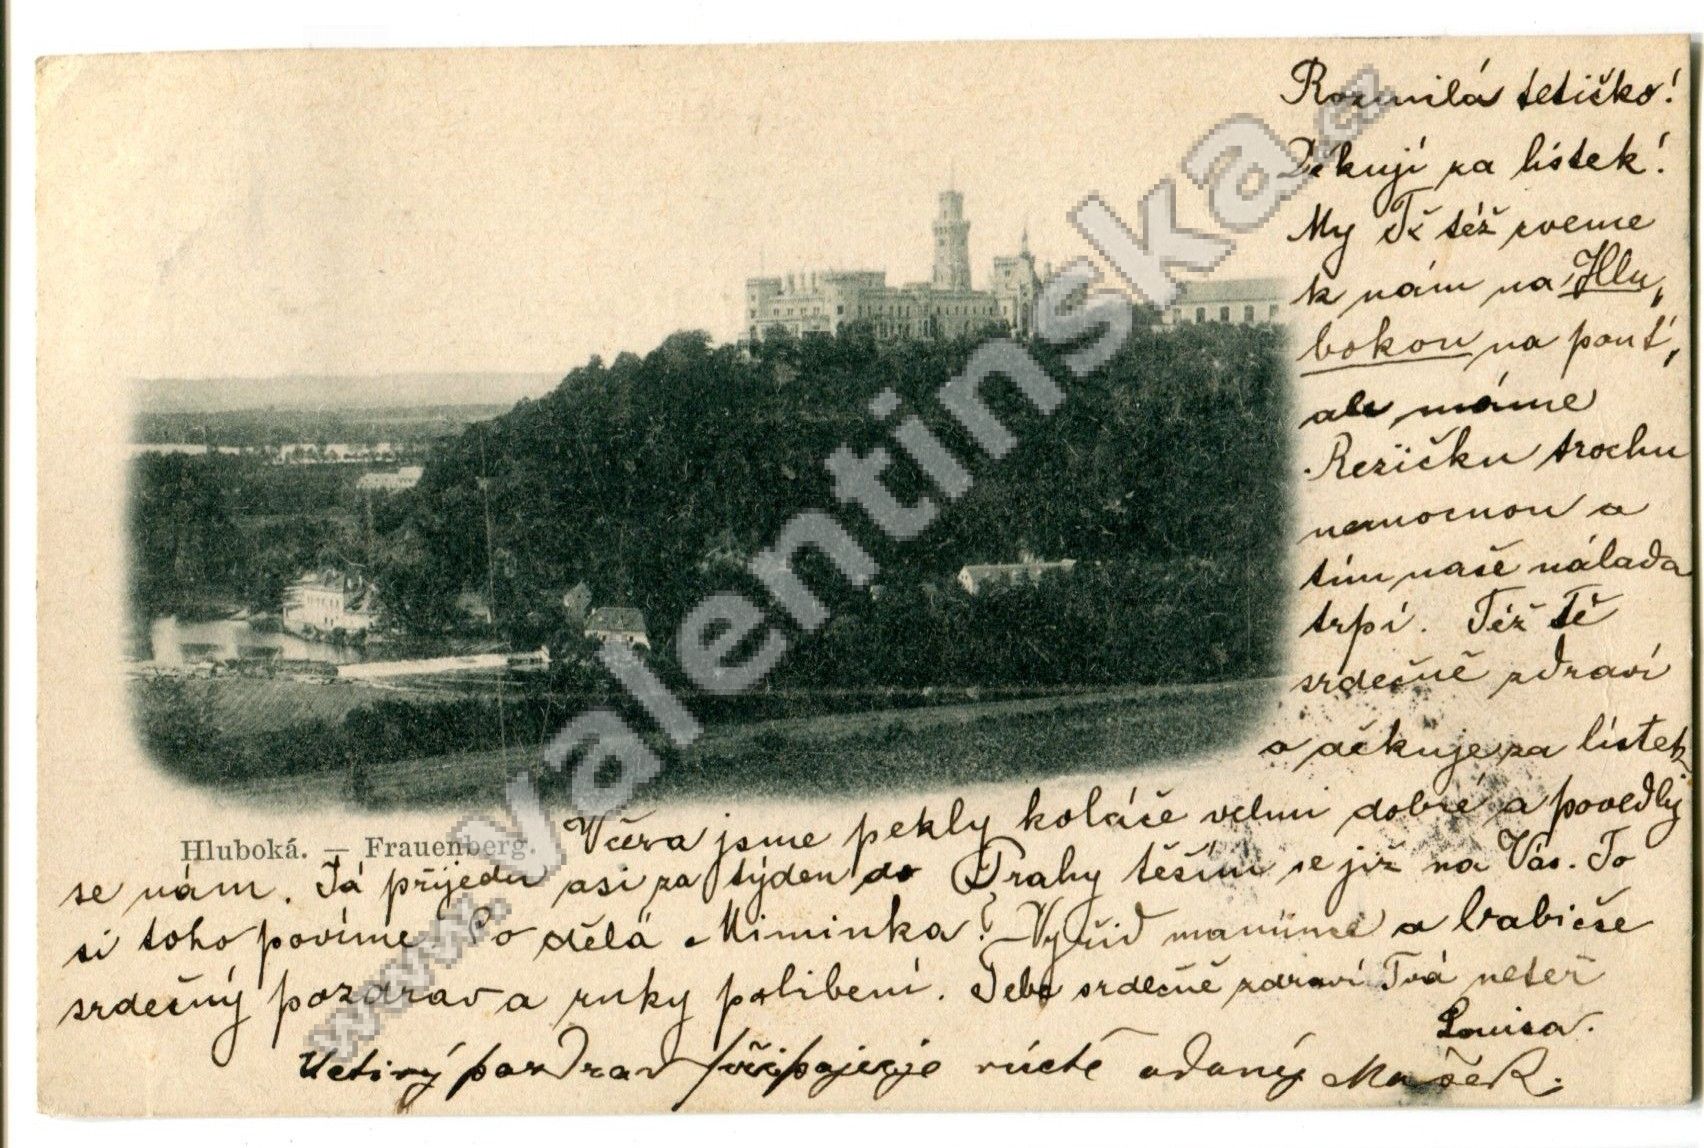 Rozmilá tetičko!
Děkuji za lístek!
My Tě též zveme
k nám na Hlu„
bokou na pouť,
ale máme
Rezičku trochu
nemocnou a
tím naše nálada
trpí. Též Tě
srdečně zdraví
a děkuje za lístek
Včera jsme pekly koláče velmi dobré a povedly
Hluboká. — Frauenberg.
se nám. Já přijedu asi za týden do Prahy těším se již na Vás. To
si toho povíme. Co dělá Miminka? – Vyřiď mamince a babičce
srdečný pozdrav a ruky políbení. Tebe srdečně zdraví Tvá neteř
Louisa.
Uctivý pozdrav připojuje v úctě oddaný
www.valentinska.cz